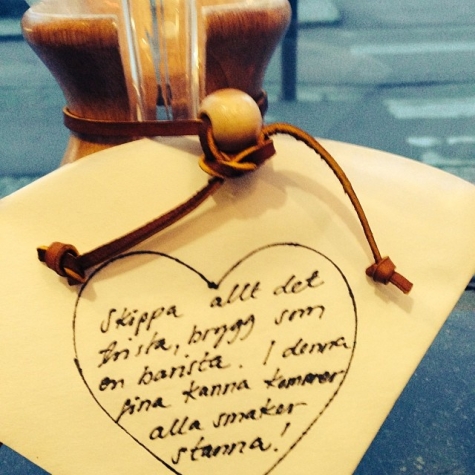 Skippa allt det
trista, brygg som
en barista. I denna
fina kanna kommer
alla smaker
stanna!